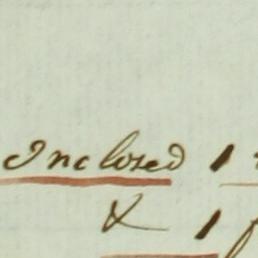 Inclosed 1
& 1